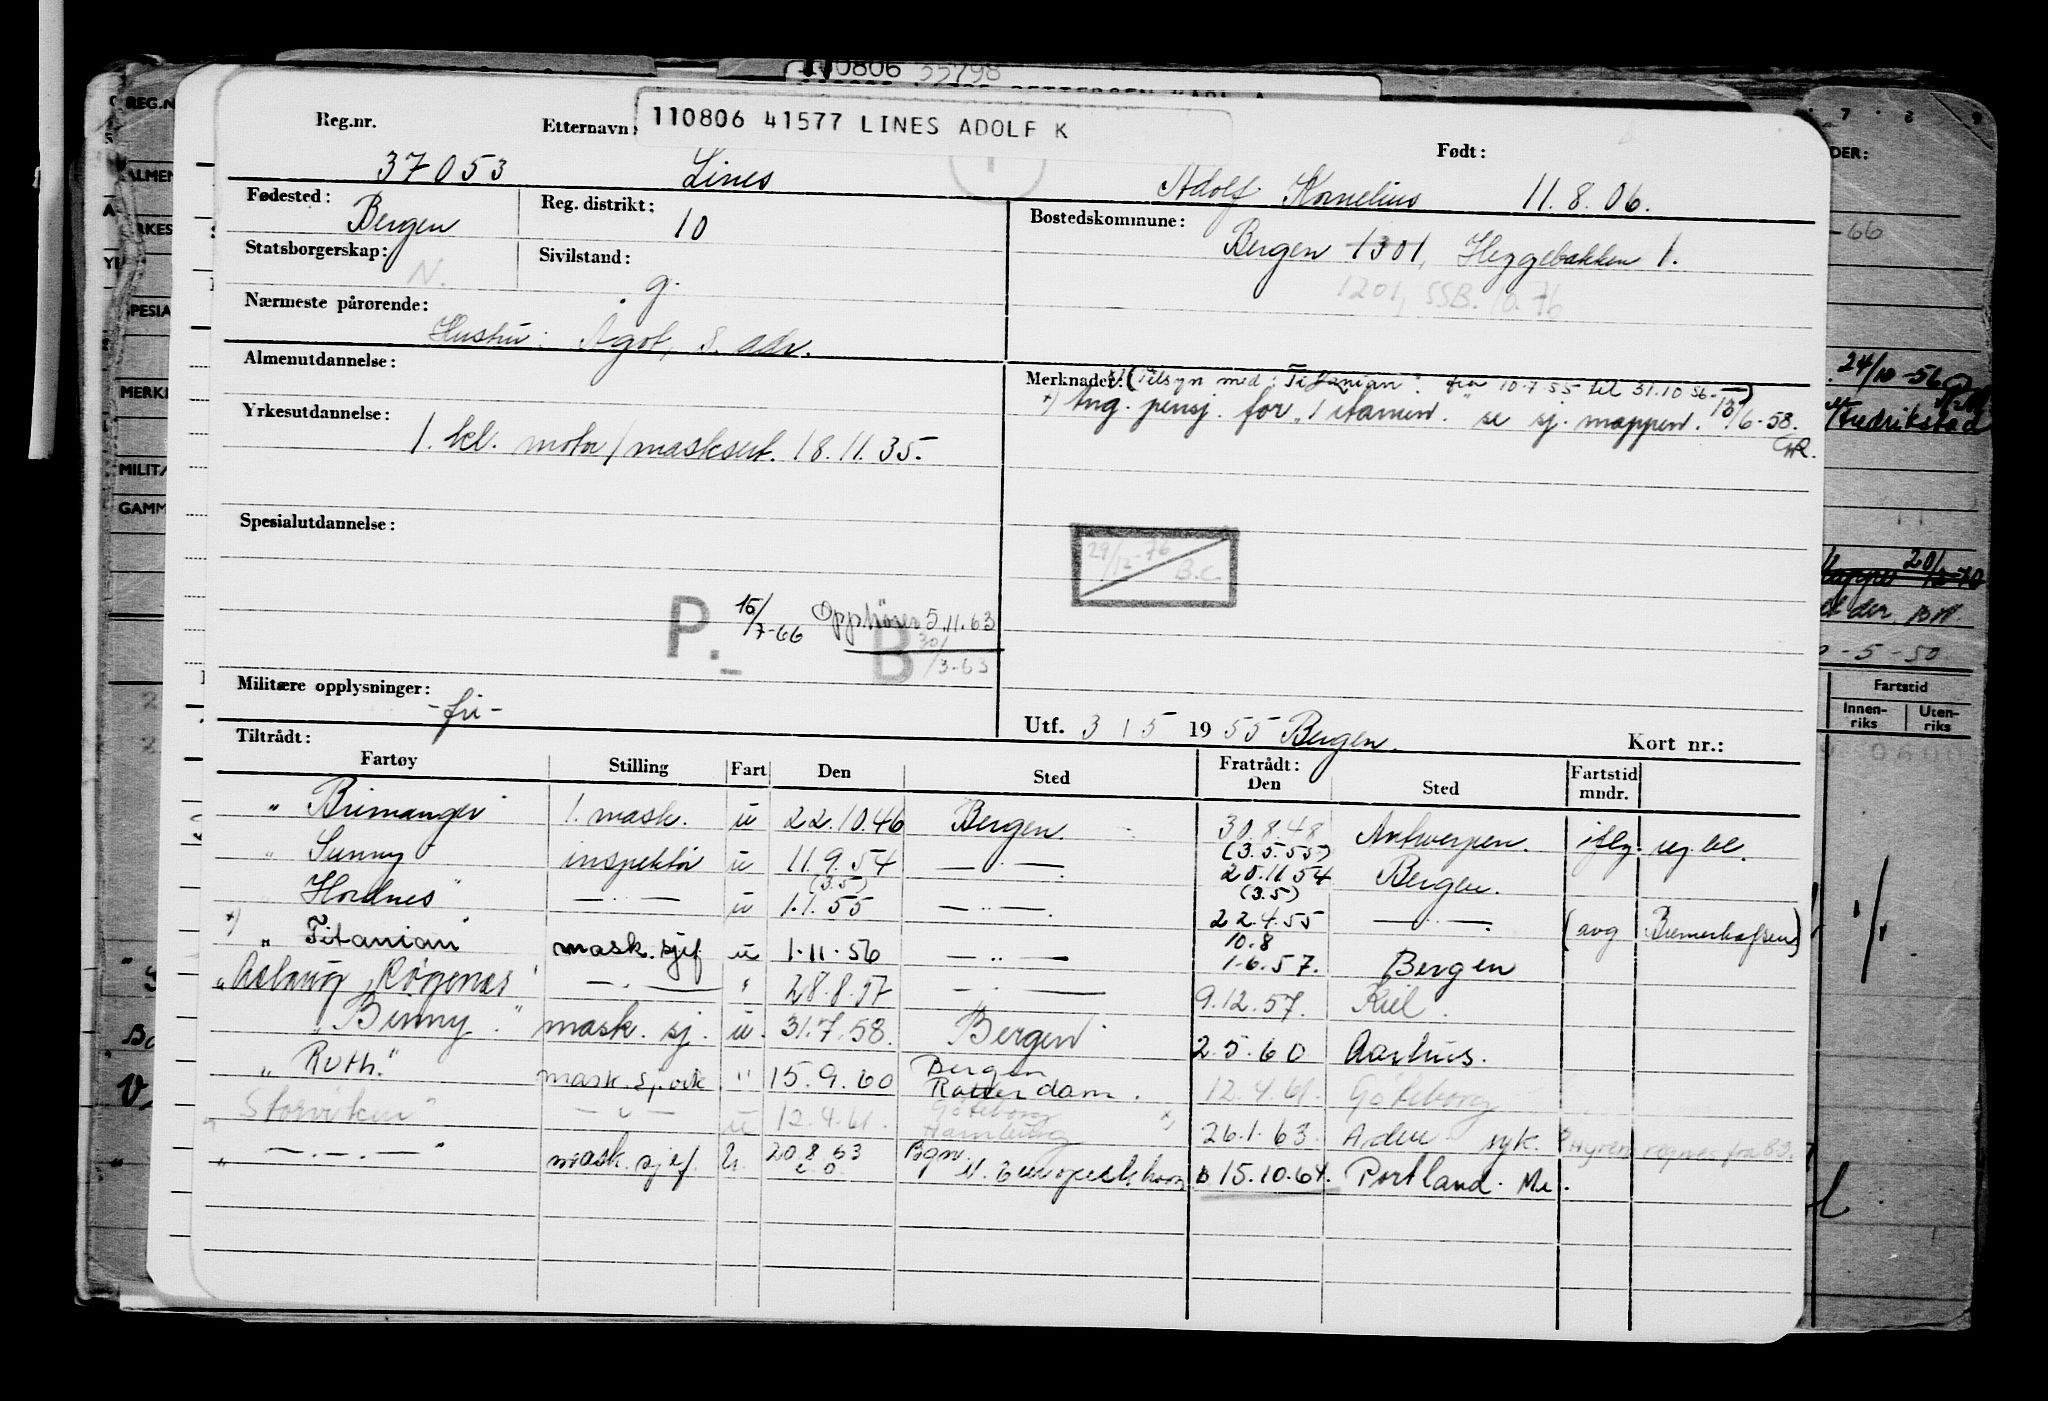 110806 22798
110806 41577 LINES ADOLF K
Reg.nr. Etternavn: Født:
37053 Lines Adolf Kornelius 11.8.06.
Fødested: Bergen Reg. distrikt: 10 Bostedskommune:
Bergen 1301, Heggebakken 1.
Statsborgerskap: N. Sivilstand: g.
1201, SSB. 10.76
Nærmeste pårørende:
Hustru: Agot, s. adr.
Almenutdannelse:
Merknader: (Tilsyn med: "Titanian". fra 10.7.55 til 31.10 56-)
x) Ang. pensj. for "Titanian" se sj. mappen. 13/6-58.
Yrkesutdannelse:
1. kl. motor/masksert. 18.11.35.
Spesialutdannelse:
29/12-76 B.C.
P. 15/7-66 Opphører 5.11.63
B 30/3-63
Militære opplysninger:
-fri-
Utf. 3 / 5 1955 Bergen. Kort nr.:
Tiltrådt: Fratrådt:
Fartøy Stilling Fart Den Sted Den Sted Fartstid mndr.
" Brimanger" 1. mask. u 22.10.46 Bergen. 30.8.48 Antwerpen. iflg. reg. bl.
(3.5.55)
" Sunny" inspektør u 11.9.54 — " — 20.11.54 Bergen.
(3.5) (3.5)
" Hordnes" — " — u 1.1.55 — " —. 22.4.55 — " — (avg Bremerhafen)
10.8
x) " Titanian" mask. sjef u 1.11.56 — " — 1.6.57. Bergen
"Aslaug Røgenæs" — " — " 28.8.57 — " — 9.12.57. Kiel.
"Binny." mask. sj. u. 31.7.58. Bergen 2.5.60 Aarhus.
" Ruth." mask. sj. " 15.9.60 Bergen Rotterdam. 12.4.61. Göteborg
" Storviken" — " — u 12.4.61. Göteborg Hamburg x) 26.1.63. Arden syk.
" — " — " mask. sjef. u. 20.8.63 Bgn. 15.10.64. Portland. Me.